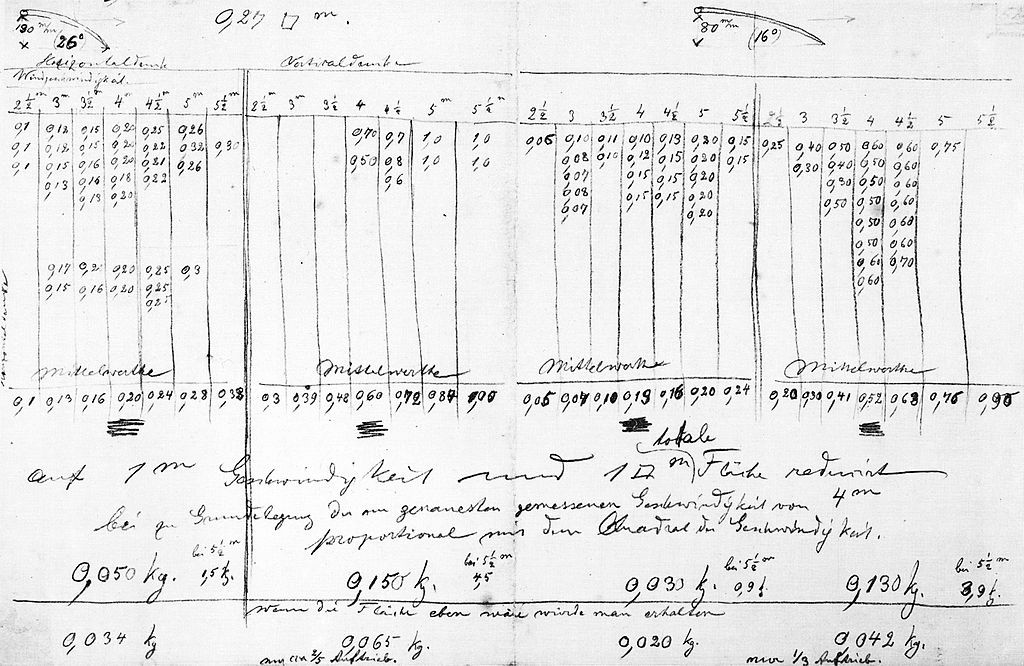 80 m/m (26°) 0,27 □ m. 80 m/m (16°)
Horizontaldrucke Verticaldrucke
Windgeschwindigkeit.
2½ m 3 m 3½ m 4 m 4½ m 5 m 5½ m 2½ m 3 m 3½ 4 4½ 5 m 5½ m 2½ 3 3½ 4 4½ 5 5½ 2½ 3 3½ 4 4½ 5 5½
0,1 0,12 0,15 0,20 0,25 0,26 0,70 0,7 1,0 1,0 0,05 0,10 0,11 0,10 0,13 0,20 0,15 0,25 0,40 0,50 0,60 0,60 0,75
0,1 0,12 0,15 0,20 0,22 0,32 0,30 0,50 0,8 1,0 1,0 0,08 0,10 0,12 0,15 0,20 0,15 0,30 0,40 0,50 0,60
0,1 0,15 0,16 0,20 0,21 0,26 0,6 0,07 0,15 0,15 0,20 0,30 0,50 0,60
0,13 0,16 0,18 0,22 0,08 0,15 0,15 0,20 0,50 0,50 0,60
0,13 0,20 0,07 0,20 0,50 0,60
0,50 0,60
0,17 0,2 0,20 0,25 0,3 0,60 0,70
0,15 0,16 0,20 0,25 0,60
Mittelwerthe Mittelwerthe Mittelwerthe Mittelwerthe
0,1 0,13 0,16 0,20 0,24 0,28 0,38 0,3 0,39 0,48 0,60 0,72 0,84 1,00 0,05 0,07 0,10 0,13 0,16 0,20 0,24 0,20 0,30 0,41 0,52 0,63 0,76 0,90
totale
auf 1 m Geschwindigkeit und 1 □ m Fläche reducirt
bei zu Grundelegung der am genauesten gemessenen Geschwindigkeit von 4 m
proportional mit dem Quadrat der Geschwindigkeit.
bei 5½ m bei 5½ m bei 5½ m bei 5½ m
0,050 kg. 1,5 k. 0,150 k. 4,5 0,030 k. 0,9 k. 0,130 kg. 3,9 k.
wenn die Fläche eben wäre würde man erhalten
0,034 kg 0,065 kg. 0,020 kg. 0,042 kg.
nur ca 2/5 Auftrieb. nur 1/3 Auftrieb.